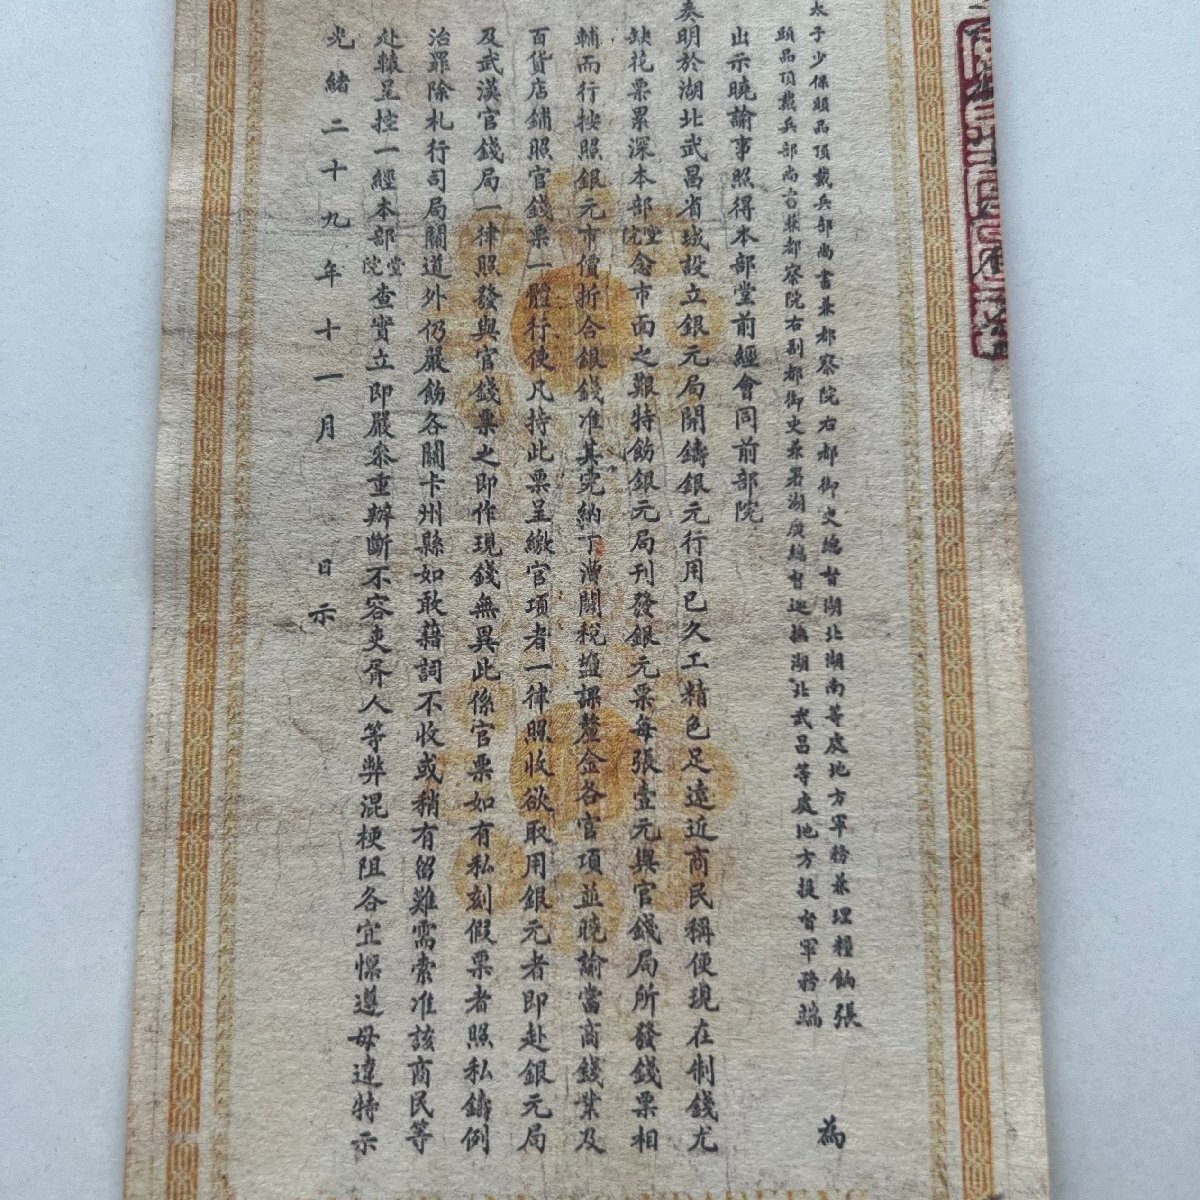 太子少保頭品頂戴兵部尚書兼都察院右都御史總督湖北湖南等處地方軍務兼理糧餉張
頭品頂戴兵部尚書兼都察院右副都御史兼署湖廣總督巡撫湖北武昌等處地方提督軍務端
為
出示曉諭事照得本部堂前經會同前部院
奏明於湖北武昌省城設立銀元局開鑄銀元行用已久工精色足遠近商民稱便現在制錢尤
缺花票累深本部堂院念市面之艱特飭銀元局刊發銀元票每張壹元與官錢局所發錢票相
輔而行按照銀元市價折合銀錢准其完納丁漕關稅鹽課釐金各官項並曉諭當商錢業及
百貨店鋪照官錢票一體行使凡持此票呈繳官項者一律照收欲取用銀元者即赴銀元局
及武漢官錢局一律照發與官錢票之即作現錢無異此係官票如有私刻假票者照私鑄例
治罪除札行司局關道外仍嚴飭各關卡州縣如敢藉詞不收或稍有留難需索准該商民等
赴轅呈控一經本部堂院查實立即嚴參重辦斷不容吏胥人等弊混梗阻各宜懍遵毋違特示
光緒二十九年十一月 日示